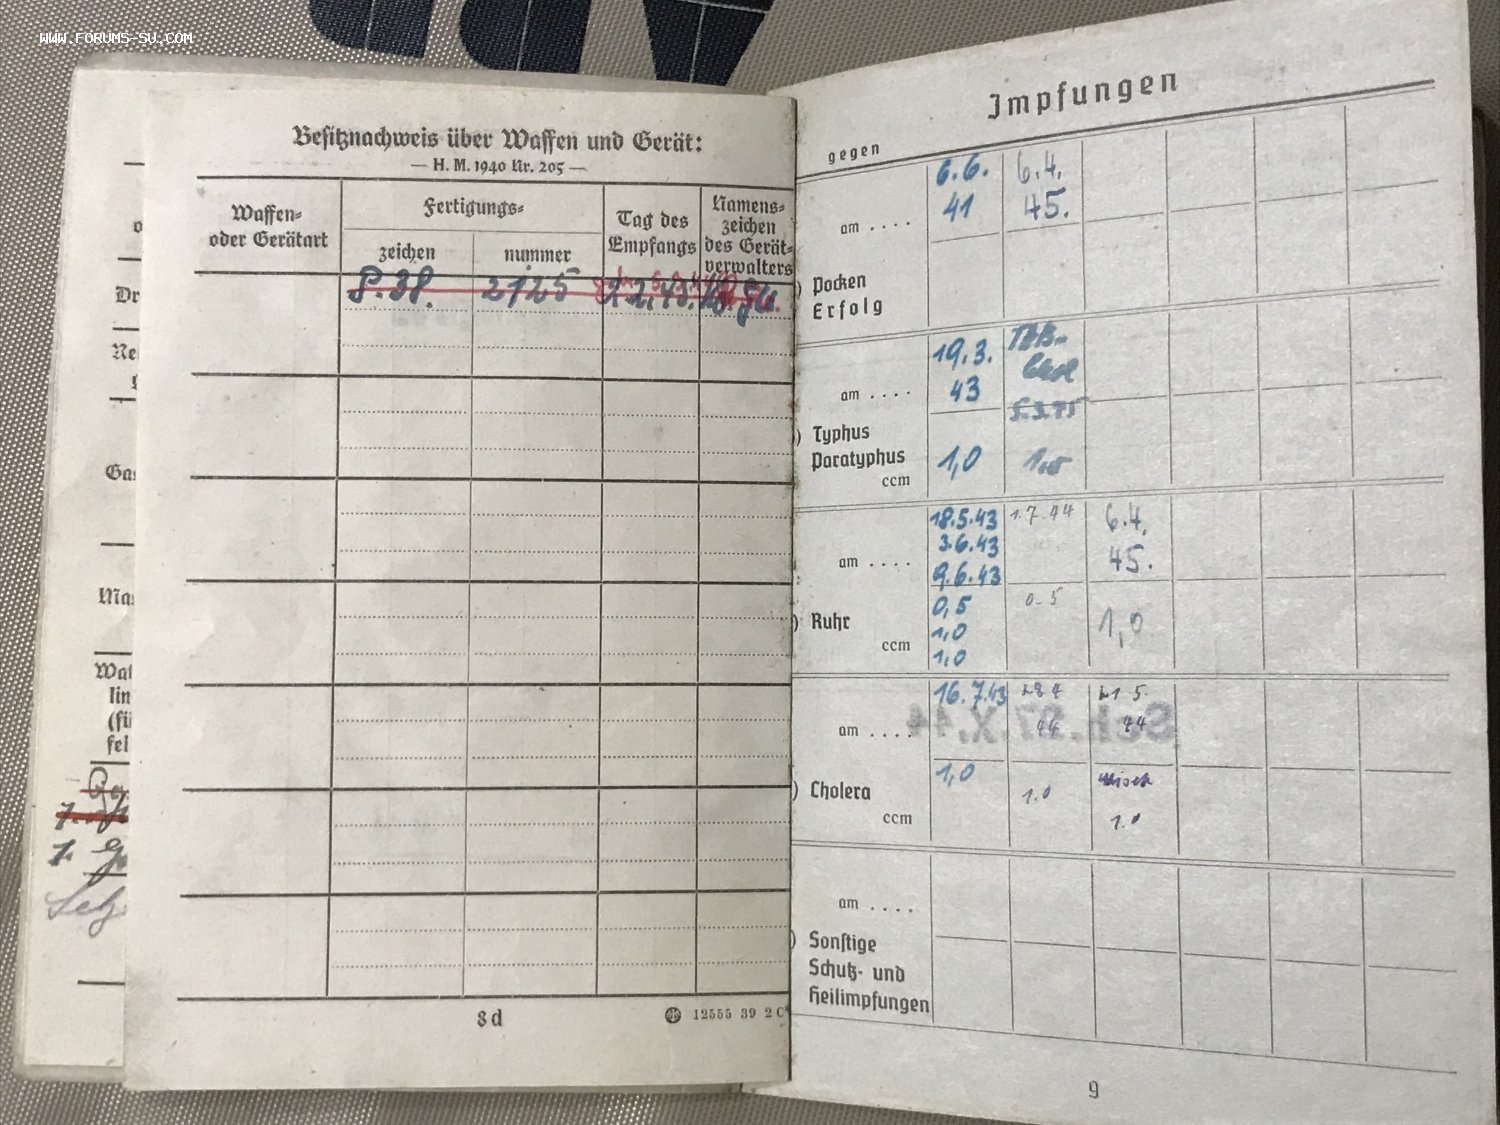 WWW.FORUMS-SU.COM
Besitznachweis über Waffen und Gerät:
— H. M. 1940 Nr. 205 —
Waffen-
oder Gerätart
Fertigungs-
zeichen
nummer
Tag des
Empfangs
Namens-
zeichen
des Gerät-
verwalters
P.38. 2125
8 d
12555 39 2 C
Dr
Ne
Ga
Ma
Waf
lin
(fü
fel
Impfungen
gegen
6.6.
41
6.4.
45.
am . . . .
Pocken
Erfolg
19.3.
43
am . . . .
Typhus
Paratyphus
ccm
1,0
18.5.43
3.6.43
9.6.43
1.7.44
6.4.
45.
am . . . .
Ruhr
ccm
0,5
1,0
1,0
0-5
1,0
16.7.43
44
44
am . . . .
Cholera
ccm
1,0
1.0
1.0
am . . . .
Sonstige
Schutz- und
Heilimpfungen
9